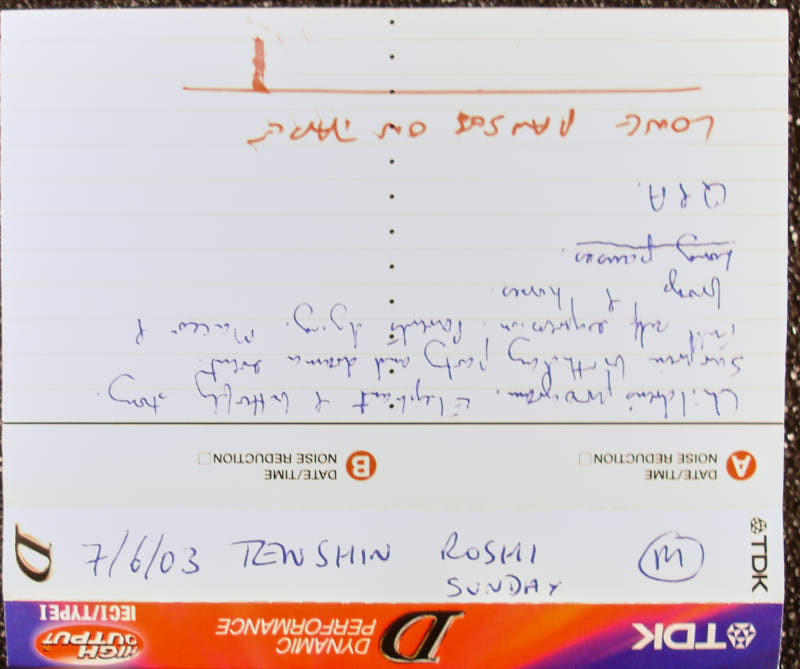 TDK D DYNAMIC PERFORMANCE HIGH OUTPUT IECI/TYPEI
TDK D
7/6/03 TENSHIN ROSHI M
SUNDAY
A DATE/TIME B DATE/TIME
NOISE REDUCTION NOISE REDUCTION
Children's program. Elephant & butterfly story.
Surprise birthday party and drama event.
Full self expression. Parents dying.
& horses.
Long pauses.
Q & A.
LONG PAUSES ON TAPE